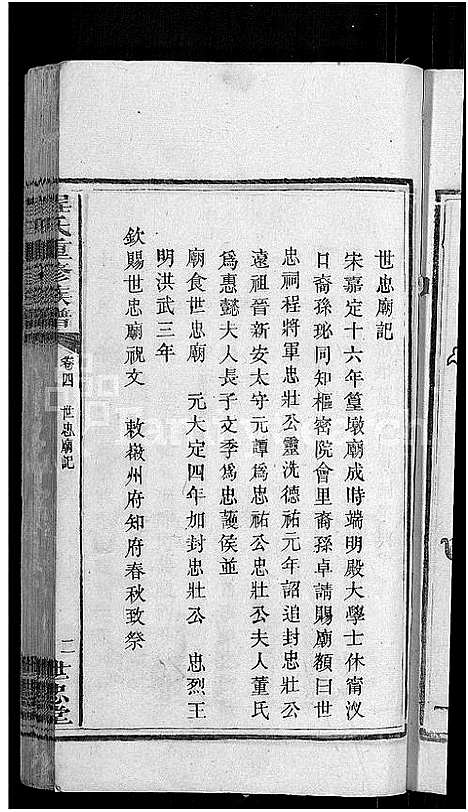 世忠廟記
宋嘉定十六年篁墩廟成時端明殿大學士休甯汊
口裔孫珌同知樞密院會里裔孫卓請賜廟額曰世
忠祠程將軍忠壯公靈洗德祐元年詔追封忠壯公
遠祖晉新安太守元譚爲忠祐公忠壯公夫人董氏
爲惠懿夫人長子文季爲忠護侯並
廟食世忠廟　元大定四年加封忠壯公　忠烈王
明洪武三年
欽賜世忠廟祝文　敕徽州府知府春秋致祭
程氏重修族譜
卷四　世忠廟記
二
世忠堂